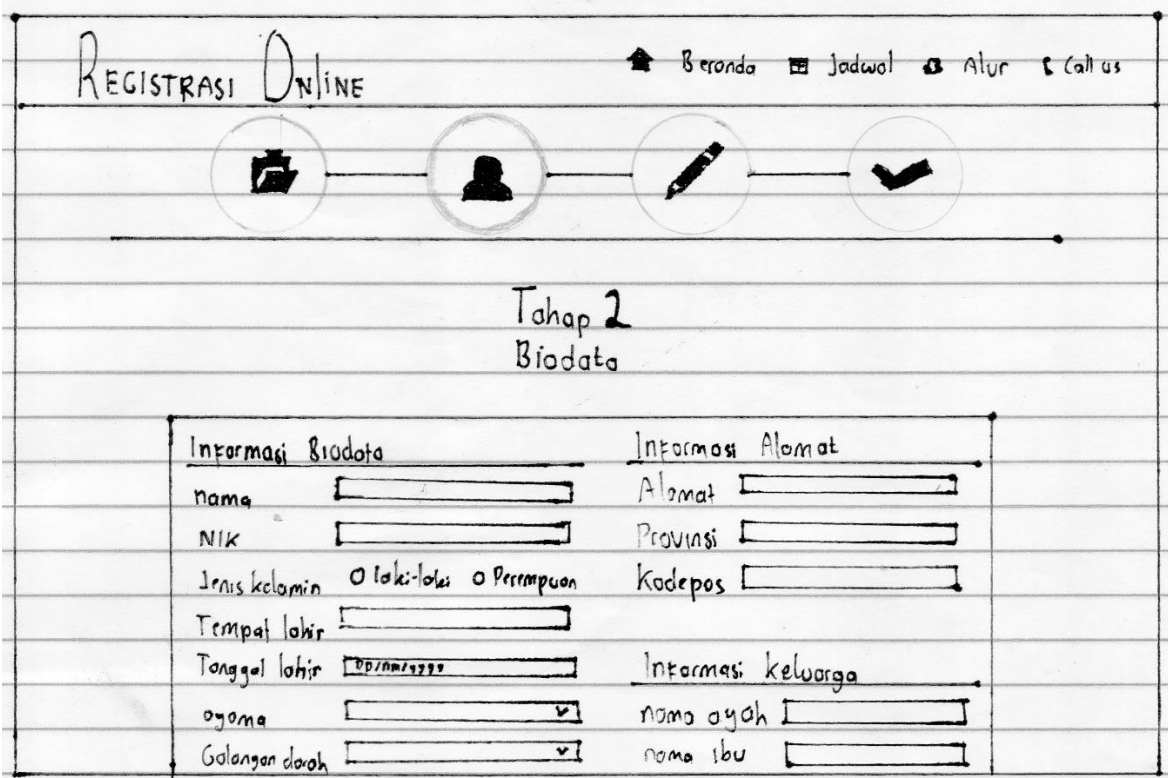 REGISTRASI ONLINE
Beranda Jadwal Alur Call us
Tahap 2
Biodata
Informasi Biodata
nama
NIK
Jenis kelamin O laki-laki O Perempuan
Tempat lahir
Tanggal lahir DD/MM/YYYY
agama
Golongan darah
Informasi Alamat
Alamat
Provinsi
Kodepos
Informasi keluarga
nama ayah
nama ibu